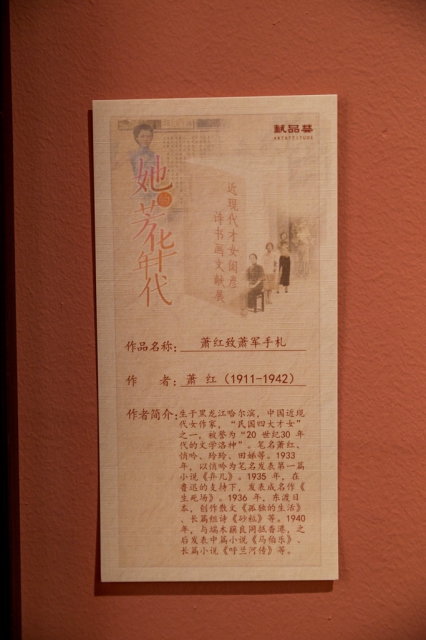 她的芳华年代
近现代才女闺彦
诗书画文献展
作品名称：萧红致萧军手札
作 者：萧 红（1911-1942）
作者简介：生于黑龙江哈尔滨，中国近现
代女作家，“民国四大才女”
之一，被誉为“20 世纪30 年
代的文学洛神”。笔名萧红、
悄吟、玲玲、田娣等。1933
年，以悄吟为笔名发表第一篇
小说《弃儿》。1935 年，在
鲁迅的支持下，发表成名作《
生死场》。1936 年，东渡日
本，创作散文《孤独的生活》
、长篇组诗《砂粒》等。1940
年，与端木蕻良同抵香港，之
后发表中篇小说《马伯乐》、
长篇小说《呼兰河传》等。